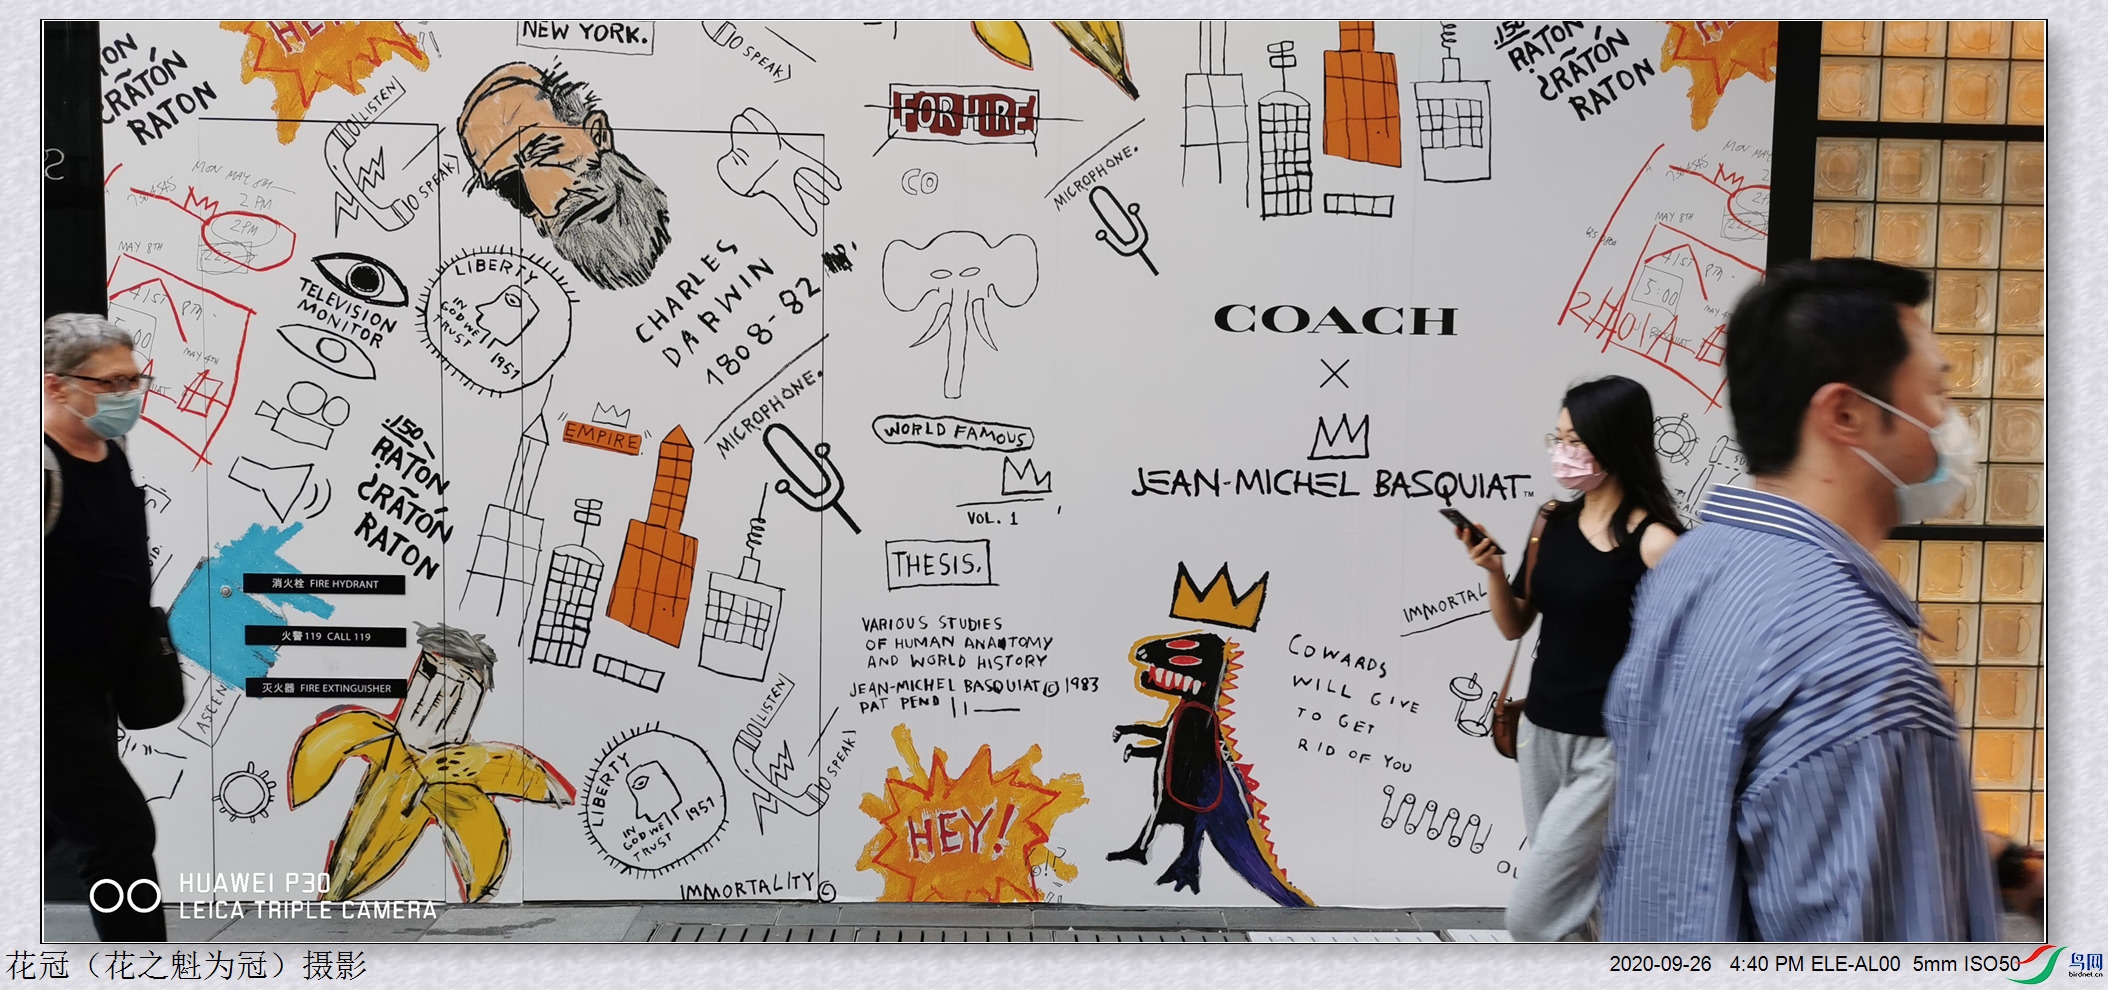 NEW YORK.
HEY!
RATON
¿RATÓN
RATON
LISTEN
SPEAK)
FOR HIRE
CO
MICROPHONE.
.150
RATON
¿RATÓN
RATON
MON MAY 8TH
2 PM
2PM
MAY 8TH
41ST PTN.
5:00
MAY 4TH
TELEVISION
MONITOR
LIBERTY
IN
GOD WE
TRUST
1951
CHARLES
DARWIN
1808-82
MICROPHONE.
"EMPIRE"
.150
RATON
¿RATÓN
RATON
WORLD FAMOUS
VOL. 1
THESIS.
VARIOUS STUDIES
OF HUMAN ANATOMY
AND WORLD HISTORY
JEAN-MICHEL BASQUIAT © 1983
PAT PEND
HEY!
COACH
×
JEAN-MICHEL BASQUIAT™
MAY 8TH
41ST PTN.
5:00
IMMORTAL
COWARDS
WILL GIVE
TO GET
RID OF YOU
消火栓 FIRE HYDRANT
火警119 CALL 119
灭火器 FIRE EXTINGUISHER
ASCEN
LIBERTY
IN
GOD WE
TRUST
1951
LISTEN
SPEAK)
IMMORTALITY ©
HUAWEI P30
LEICA TRIPLE CAMERA
花冠（花之魁为冠）摄影
2020-09-26 4:40 PM ELE-AL00 5mm ISO50
鸟网
birdnet.cn